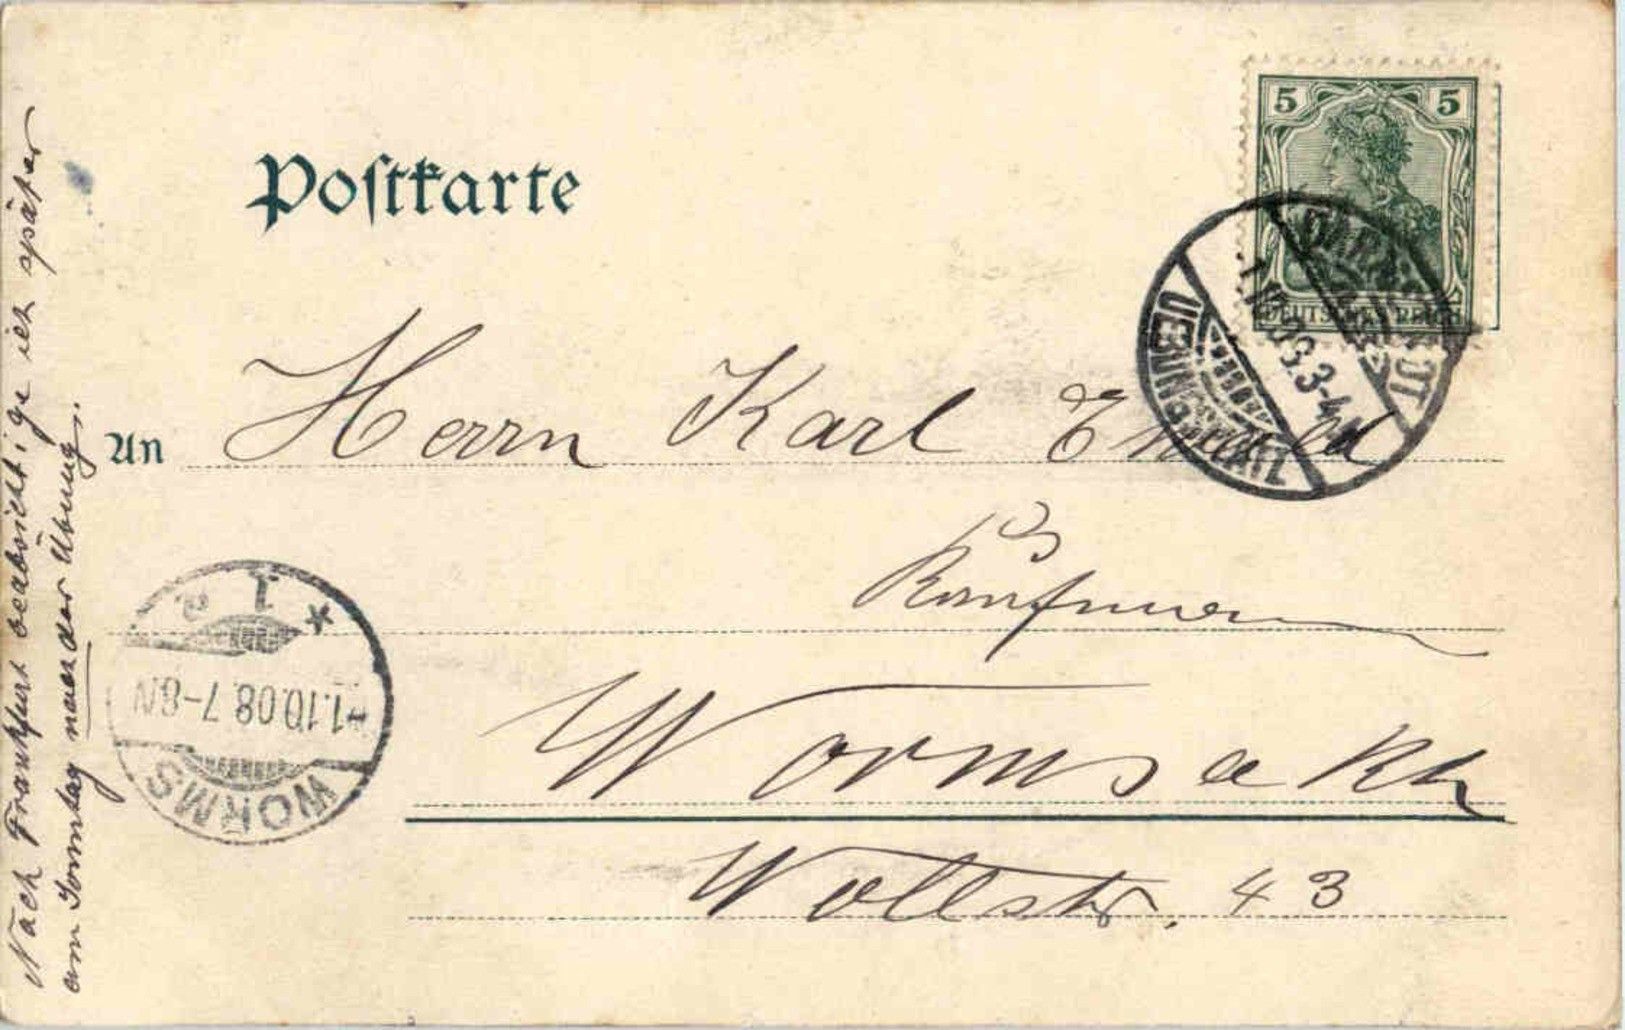 Postkarte
5 5
DEUTSCHES REICH
An Herrn Karl Ewald
Kaufmann
Worms a Rh
Wollstr. 43
WORMS
1.10.08.7-8N
* 1
DARMSTADT
UEBUNGSPLATZ
Nach Frankfurt beabsichtige ich später
am Sonntag nach der Übung.